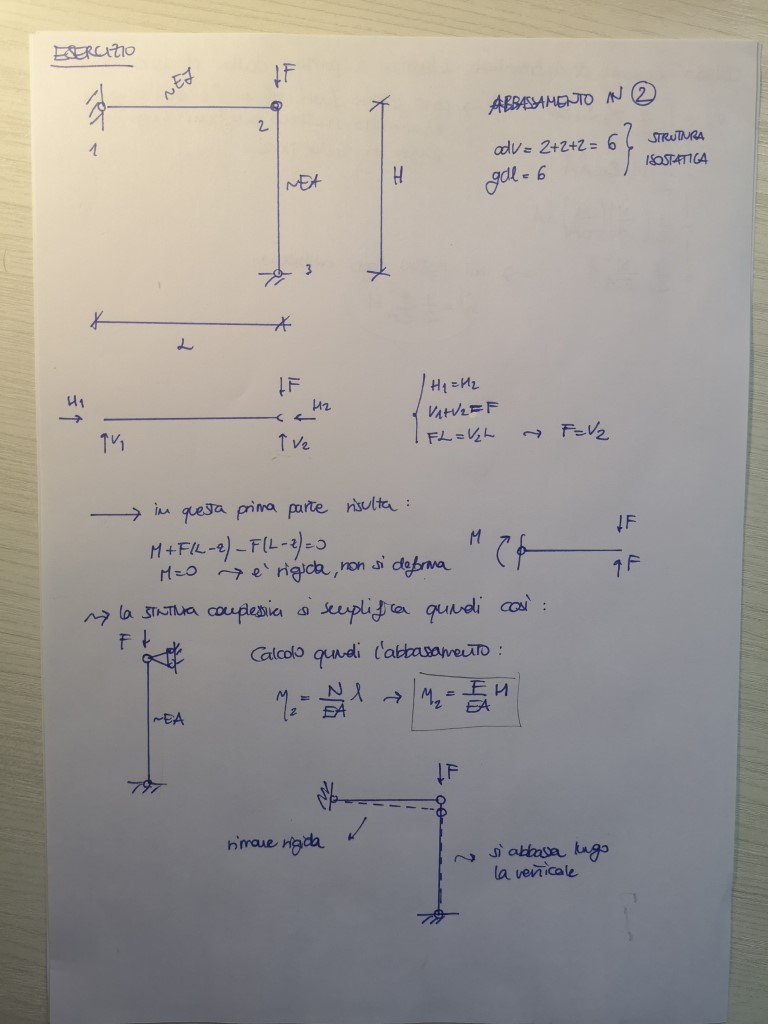 ESERCIZIO
~EJ
↓F
1
2
~EA
H
3
L
ABBASSAMENTO IN ②
odv = 2+2+2 = 6
gdl = 6
STRUTTURA
ISOSTATICA
H1
V1
↓F
H2
V2
H1 = H2
V1+V2 = F
FL = V2L → F = V2
→ in questa prima parte risulta :
M + F(L-z) - F(L-z) = 0
M = 0 → è rigida, non si deforma
M
↓F
↑F
~> la struttura complessiva si semplifica quindi così :
F↓
~EA
Calcolo quindi l'abbassamento :
η2 = N/EA l → η2 = F/EA H
↓F
rimane rigida
~> si abbassa lungo
la verticale